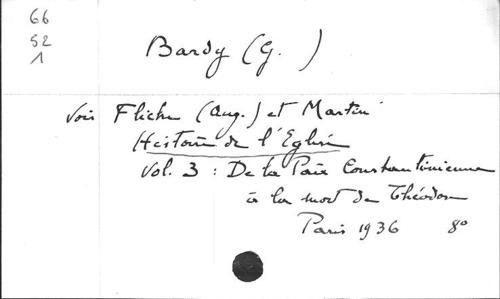 66
52
1
Bardy (G. )
Voir Fliche (Aug.) et Martin
Histoire de l'Eglise
Vol. 3 : De la Paix Constantinienne
à la mort de Théodose
Paris 1936 8°